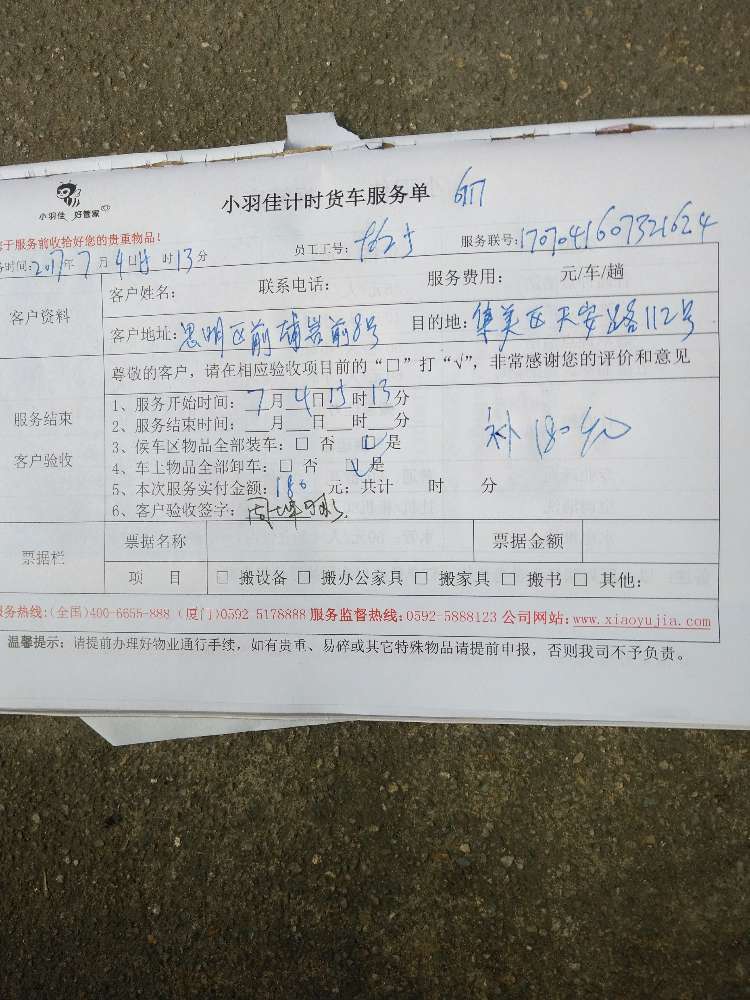 小羽佳 好管家
小羽佳计时货车服务单
于服务前收拾好您的贵重物品!
务时间:2017年7月4日 时13分 员工工号: 服务联号:1707041607321624
客户资料
客户姓名: 联系电话: 服务费用: 元/车/趟
客户地址:思明区前埔岩前8号 目的地:集美区天安路112号
服务结束
客户验收
尊敬的客户,请在相应验收项目前的“□”打“√”,非常感谢您的评价和意见
1、服务开始时间:7月4日15时13分
2、服务结束时间: 月 日 时 分
3、候车区物品全部装车:□ 否 ☑是
4、车上物品全部卸车:□ 否 ☑是
5、本次服务实付金额:180 元;共计 时 分
6、客户验收签字:
补180
票据栏
票据名称 票据金额
项 目 □ 搬设备 □ 搬办公家具 □ 搬家具 □ 搬书 □ 其他:
服务热线:(全国)400-6655-888 (厦门)0592 5178888 服务监督热线:0592-5888123 公司网站:www.xiaoyujia.com
温馨提示:请提前办理好物业通行手续,如有贵重、易碎或其它特殊物品请提前申报,否则我司不予负责。